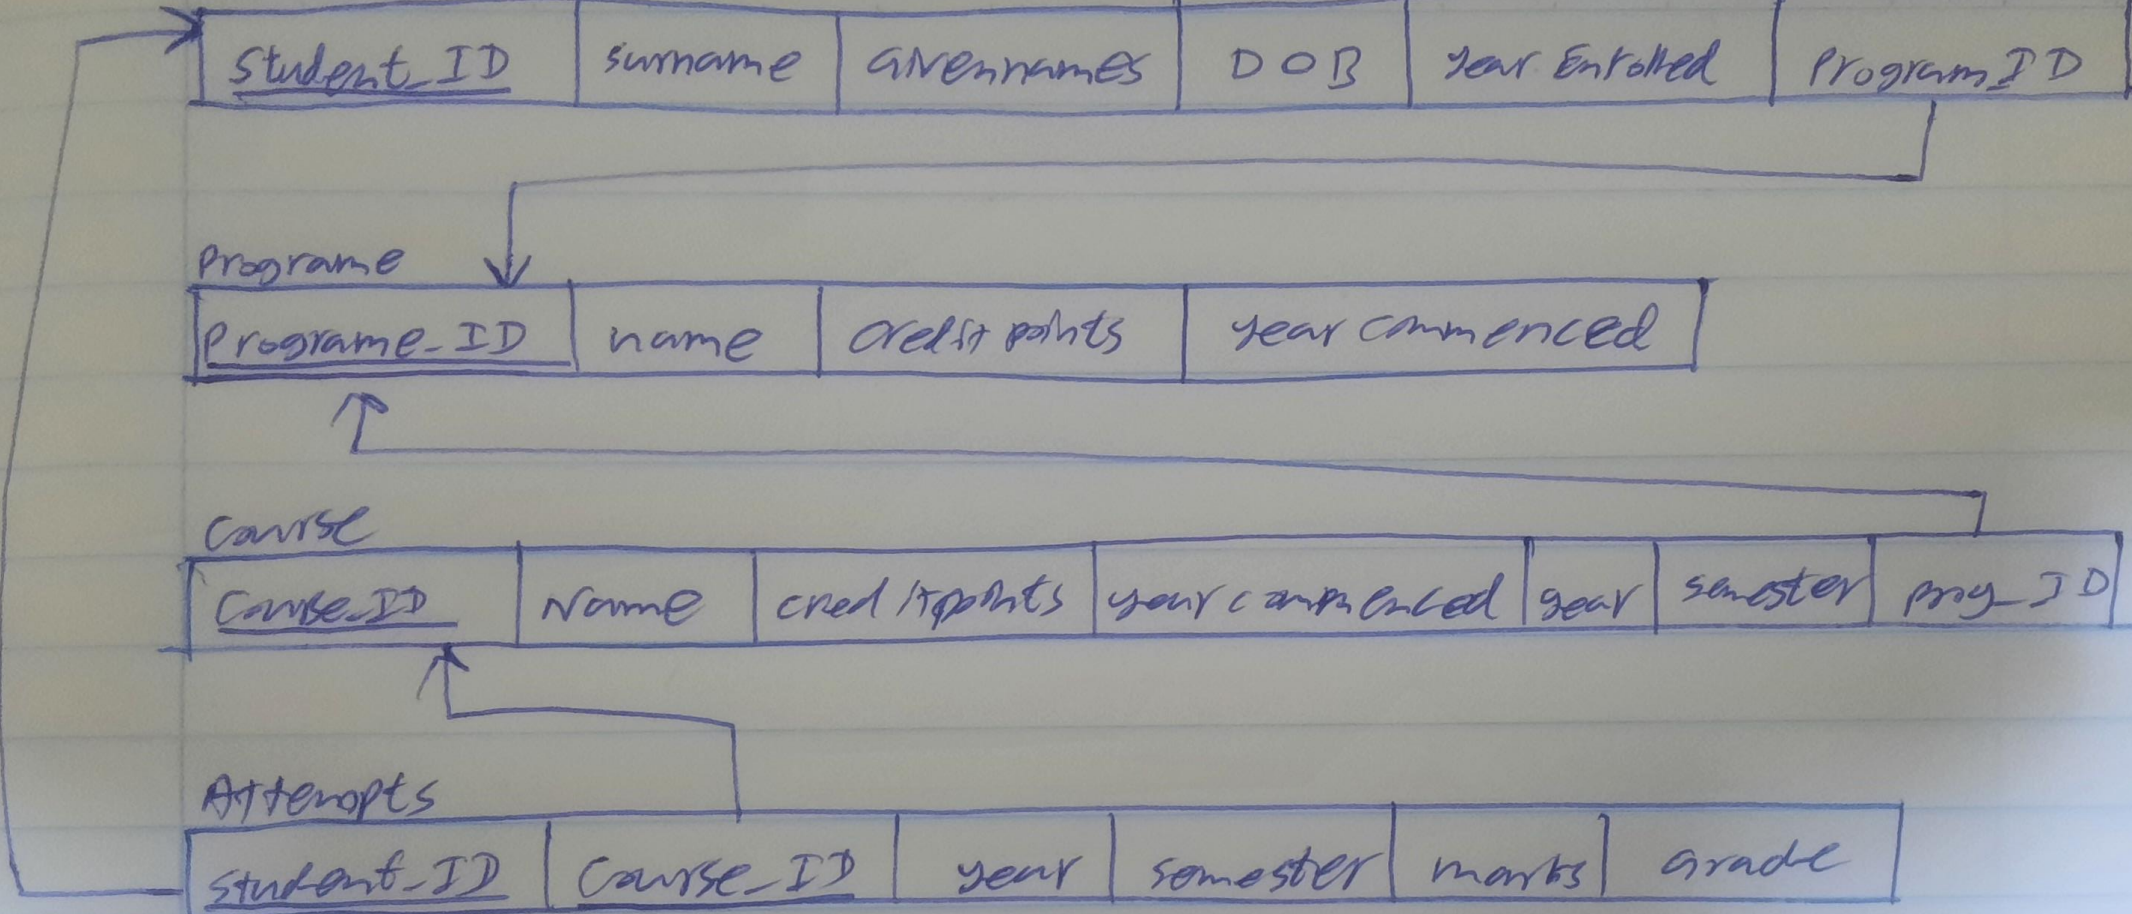 Student_ID surname Givennames DOB year Enrolled Program_ID
Programe
Programe_ID name credit points year commenced
Course
Course_ID Name creditpoints year commenced year semester prog_ID
Attempts
Student_ID Course_ID year semester marks Grade